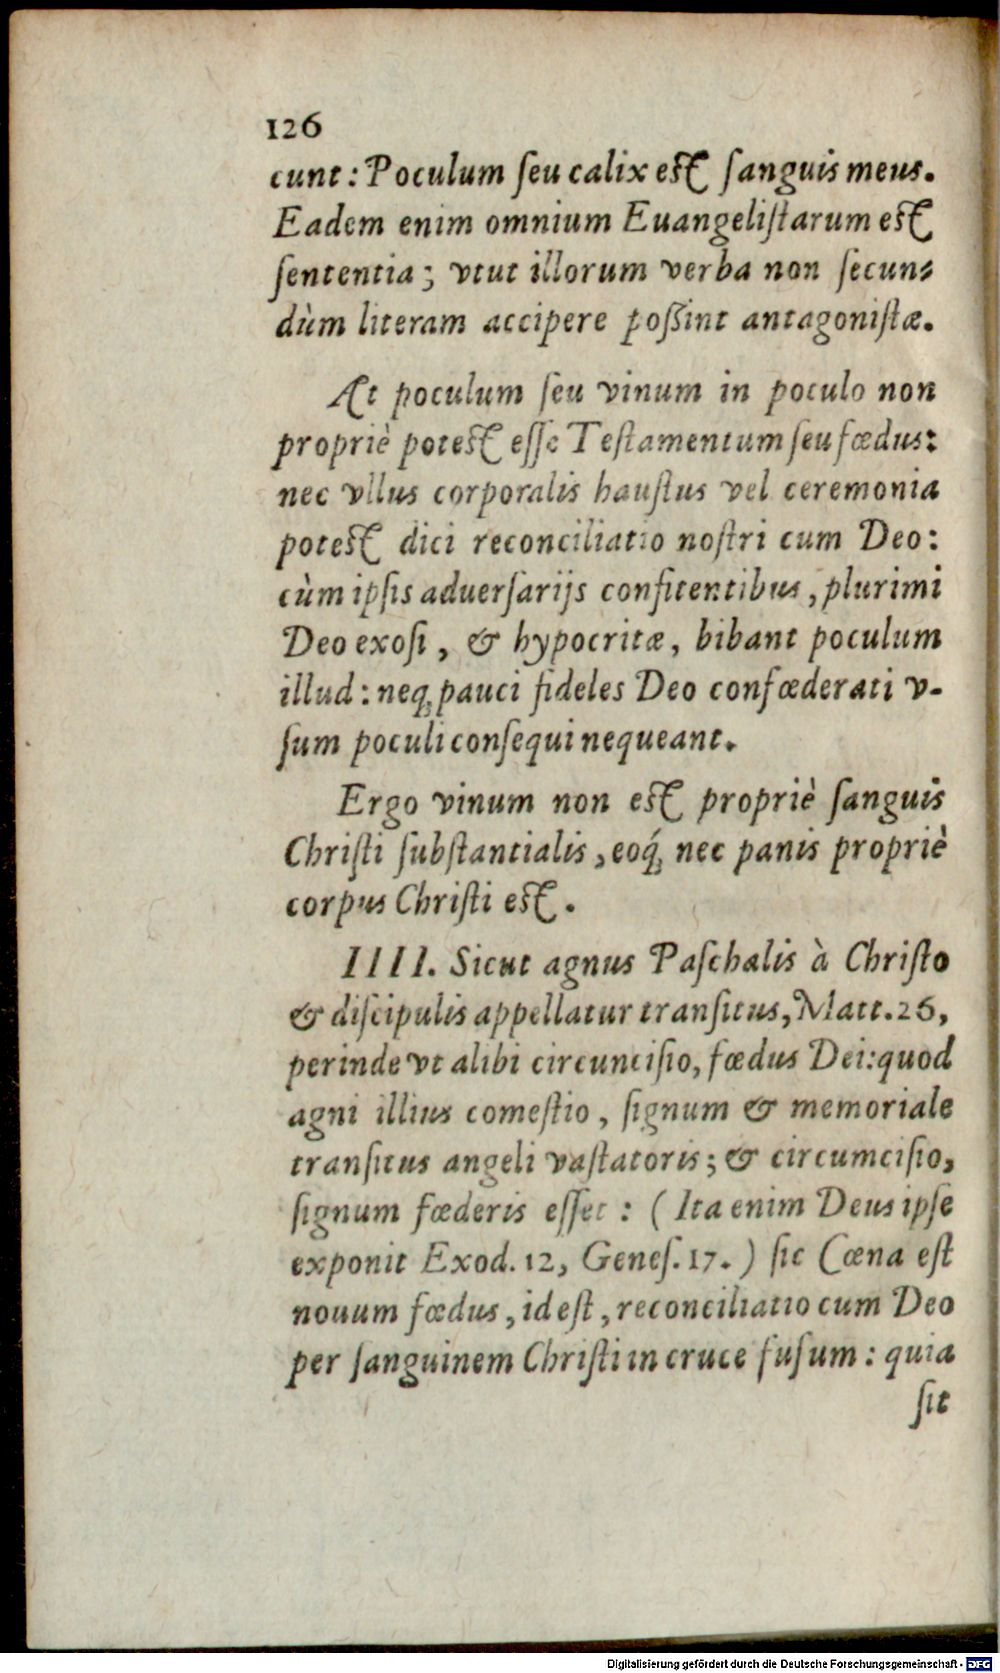 126
cunt: Poculum ſeu calix eſt ſanguis meus.
Eadem enim omnium Euangeliſtarum eſt
ſententia; vtut illorum verba non ſecun-
dùm literam accipere poſſint antagoniſtæ.
At poculum ſeu vinum in poculo non
propriè poteſt eſſe Teſtamentum ſeu fœdus:
nec vllus corporalis hauſtus vel ceremonia
poteſt dici reconciliatio noſtri cum Deo:
cùm ipſis aduerſarijs confitentibus, plurimi
Deo exoſi, & hypocritæ, bibant poculum
illud: neq; pauci fideles Deo confœderati v-
ſum poculi conſequi nequeant.
Ergo vinum non eſt propriè ſanguis
Chriſti ſubſtantialis, eoq́; nec panis propriè
corpus Chriſti eſt.
IIII. Sicut agnus Paſchalis à Chriſto
& diſcipulis appellatur tranſitus, Matt. 26,
perinde vt alibi circunciſio, fœdus Dei: quod
agni illius comeſtio, ſignum & memoriale
tranſitus angeli vaſtatoris; & circumciſio,
ſignum fœderis eſſet: (Ita enim Deus ipſe
exponit Exod. 12, Geneſ. 17.) ſic Cœna eſt
nouum fœdus, id eſt, reconciliatio cum Deo
per ſanguinem Chriſti in cruce fuſum: quia
ſit
Digitalisierung gefördert durch die Deutsche Forschungsgemeinschaft - DFG